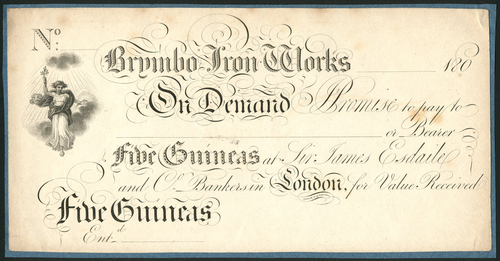 No:
Brymbo Iron Works 180
On Demand I Promise to pay to
or Bearer
Five Guineas at Sir James Esdaile
and Co. Bankers in London, for Value Received
Five Guineas
Entd.